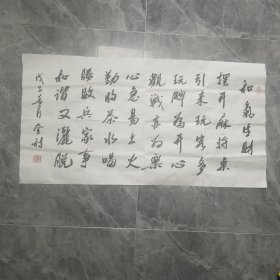 和氣生財
擺開麻將桌
引來玩客多
玩牌為開心
觀戰亦為樂
心急易上火
勤收茶水喝
勝敗兵家事
和谐又灑脫
戊子春月 金村